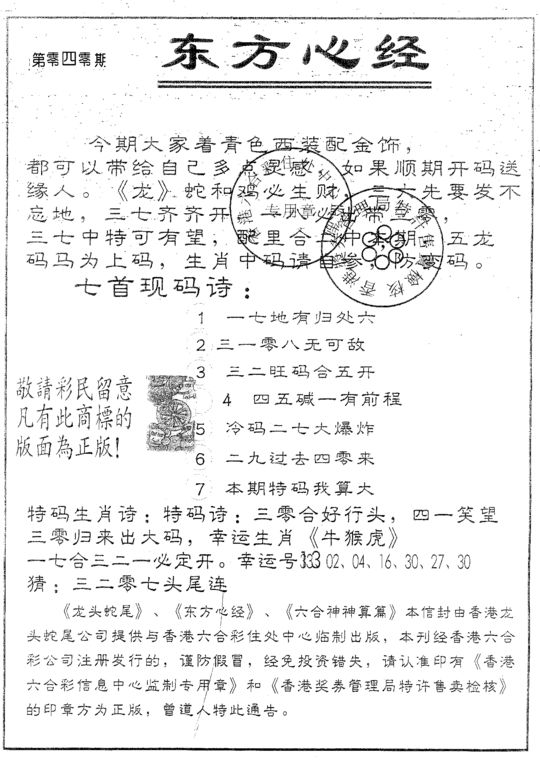 第零四零期
东方心经
今期大家着青色西装配金饰，
都可以带给自己多点灵感，如果顺期开码送
缘人。《龙》蛇和鸡必生财，三六先要发不
忘地，三七齐齐开，一八必出带三零，
三七中特可有望，配里合一中本期，五龙
码马为上码，生肖中码请自参，防变码。
七首现码诗：
1 一七地有归处六
2 三一零八无可敌
3 三二旺码合五开
4 四五碱一有前程
5 冷码二七大爆炸
6 二九过去四零来
7 本期特码我算大
敬請彩民留意
凡有此商標的
版面為正版！
特码生肖诗：特码诗：三零合好行头，四一笑望
三零归来出大码，幸运生肖《牛猴虎》
一七合三二一必定开。幸运号333 02、04、16、30、27、30
猜：三二零七头尾连
《龙头蛇尾》、《东方心经》、《六合神神算篇》本信封由香港龙
头蛇尾公司提供与香港六合彩住处中心临制出版，本刊经香港六合
彩公司注册发行的，谨防假冒，经免投资错失，请认准印有《香港
六合彩信息中心监制专用章》和《香港奖券管理局特许售卖检核》
的印章方为正版，曾道人特此通告。
专用章